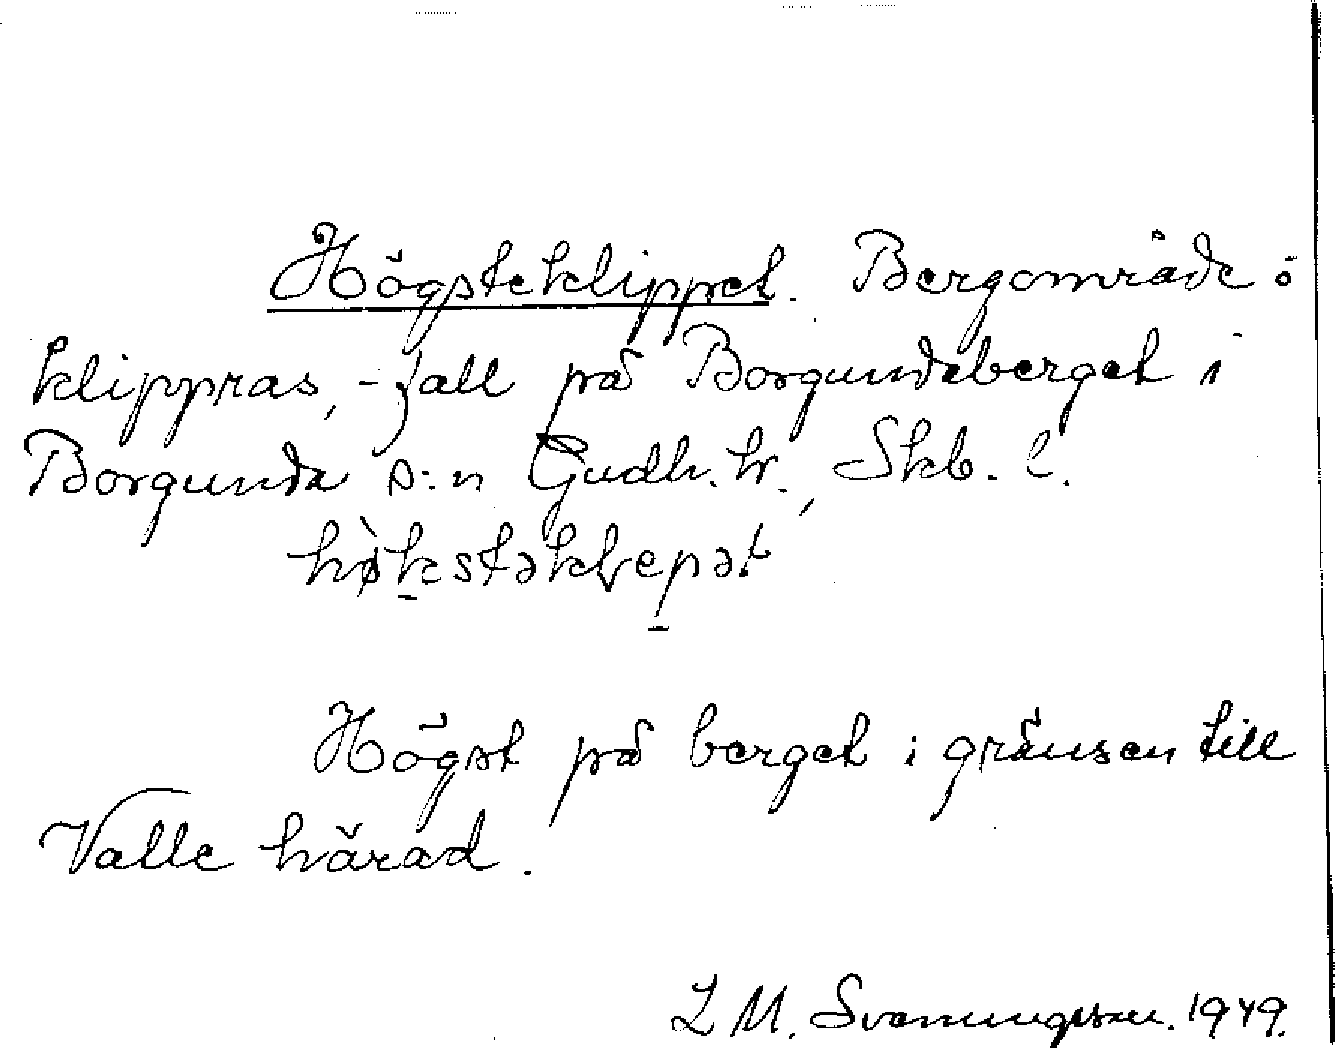 Högsteklippet. Bergområde ö
klippras, -fall på Borgundaberget i
Borgunda s:n Gudh. hr., Skb. l.
Högst på berget i gränsen till
Valle härad.
L M. Svenungsson. 1949.